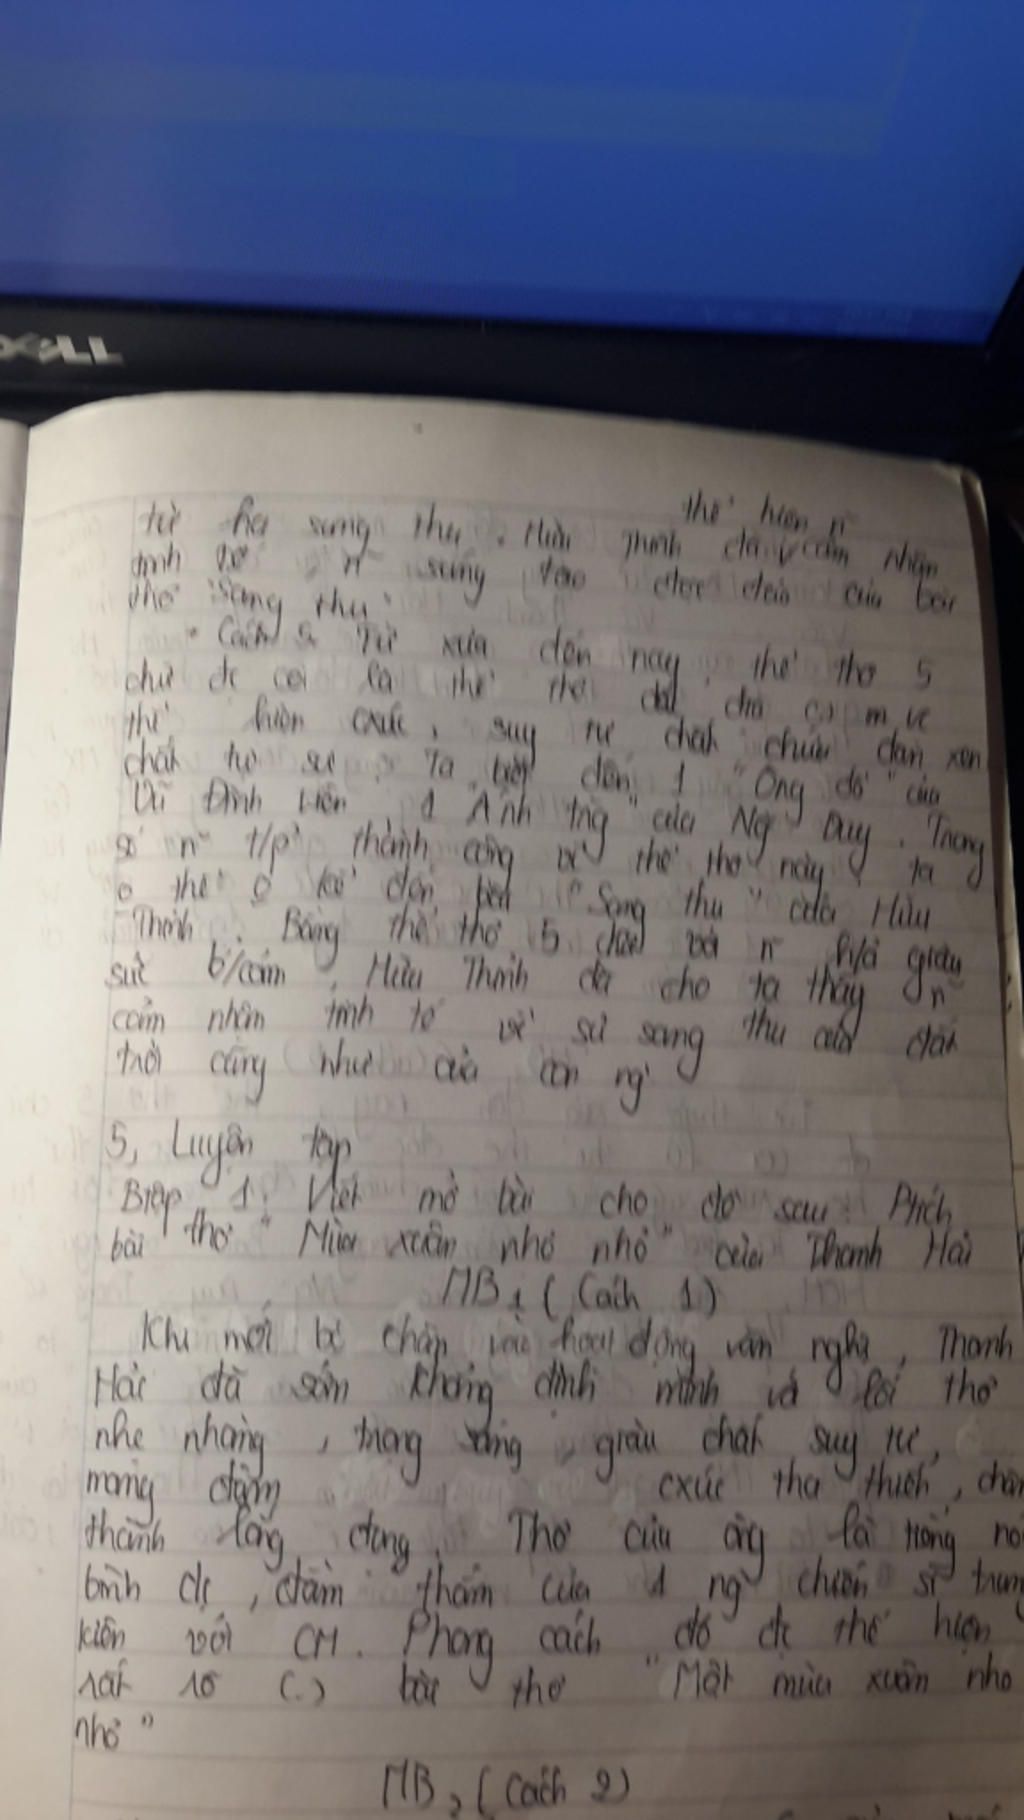 DELL
thể hiện n~
từ hạ sang thu. Hữu Thỉnh đã v cảm nhận
tinh tế, n~ sáng tạo độc đáo của bài
thơ "Sang thu"
* Cách 2: Từ xưa đến nay, thể thơ 5
chữ đc coi là thể thơ đắt cho (.) m vc
thể hiện cxúc, suy tư chất chứa đan xen
chất tự sự. Ta biết đến 1 "Ông đồ" của
Vũ Đình Liên, 1 "Ánh trg" của Ng~ Duy. Trong
số n~ t/p thành công về thể thơ này, ta
o thể o kể đến bài "Sang thu" của Hữu
Thỉnh. Bằng thể thơ 5 chữ và n~ h/ả giàu
sức b/cảm, Hữu Thỉnh đã cho ta thấy n~
cảm nhận tinh tế về sự sang thu của đất
trời cũng như của con ng`
5, Luyện tập
Btập 1: Viết mở bài cho đề sau: Ptích
bài thơ "Mùa xuân nho nhỏ" của Thanh Hải
MB1 (Cách 1)
Khi mới bc chân vào hoạt động văn nghệ, Thanh
Hải đã sớm khẳng định mình và lối thơ
nhẹ nhàng, trong sáng, giàu chất suy tư,
mang đậm cxúc tha thiết, chân
thành lắng đọng. Thơ của ông là tiếng nói
bình dị, đằm thắm của 1 ng` chiến sĩ trung
kiên với CM. Phong cách đó đc thể hiện
rất rõ (.) bài thơ "Một mùa xuân nho
nhỏ"
MB2 (Cách 2)